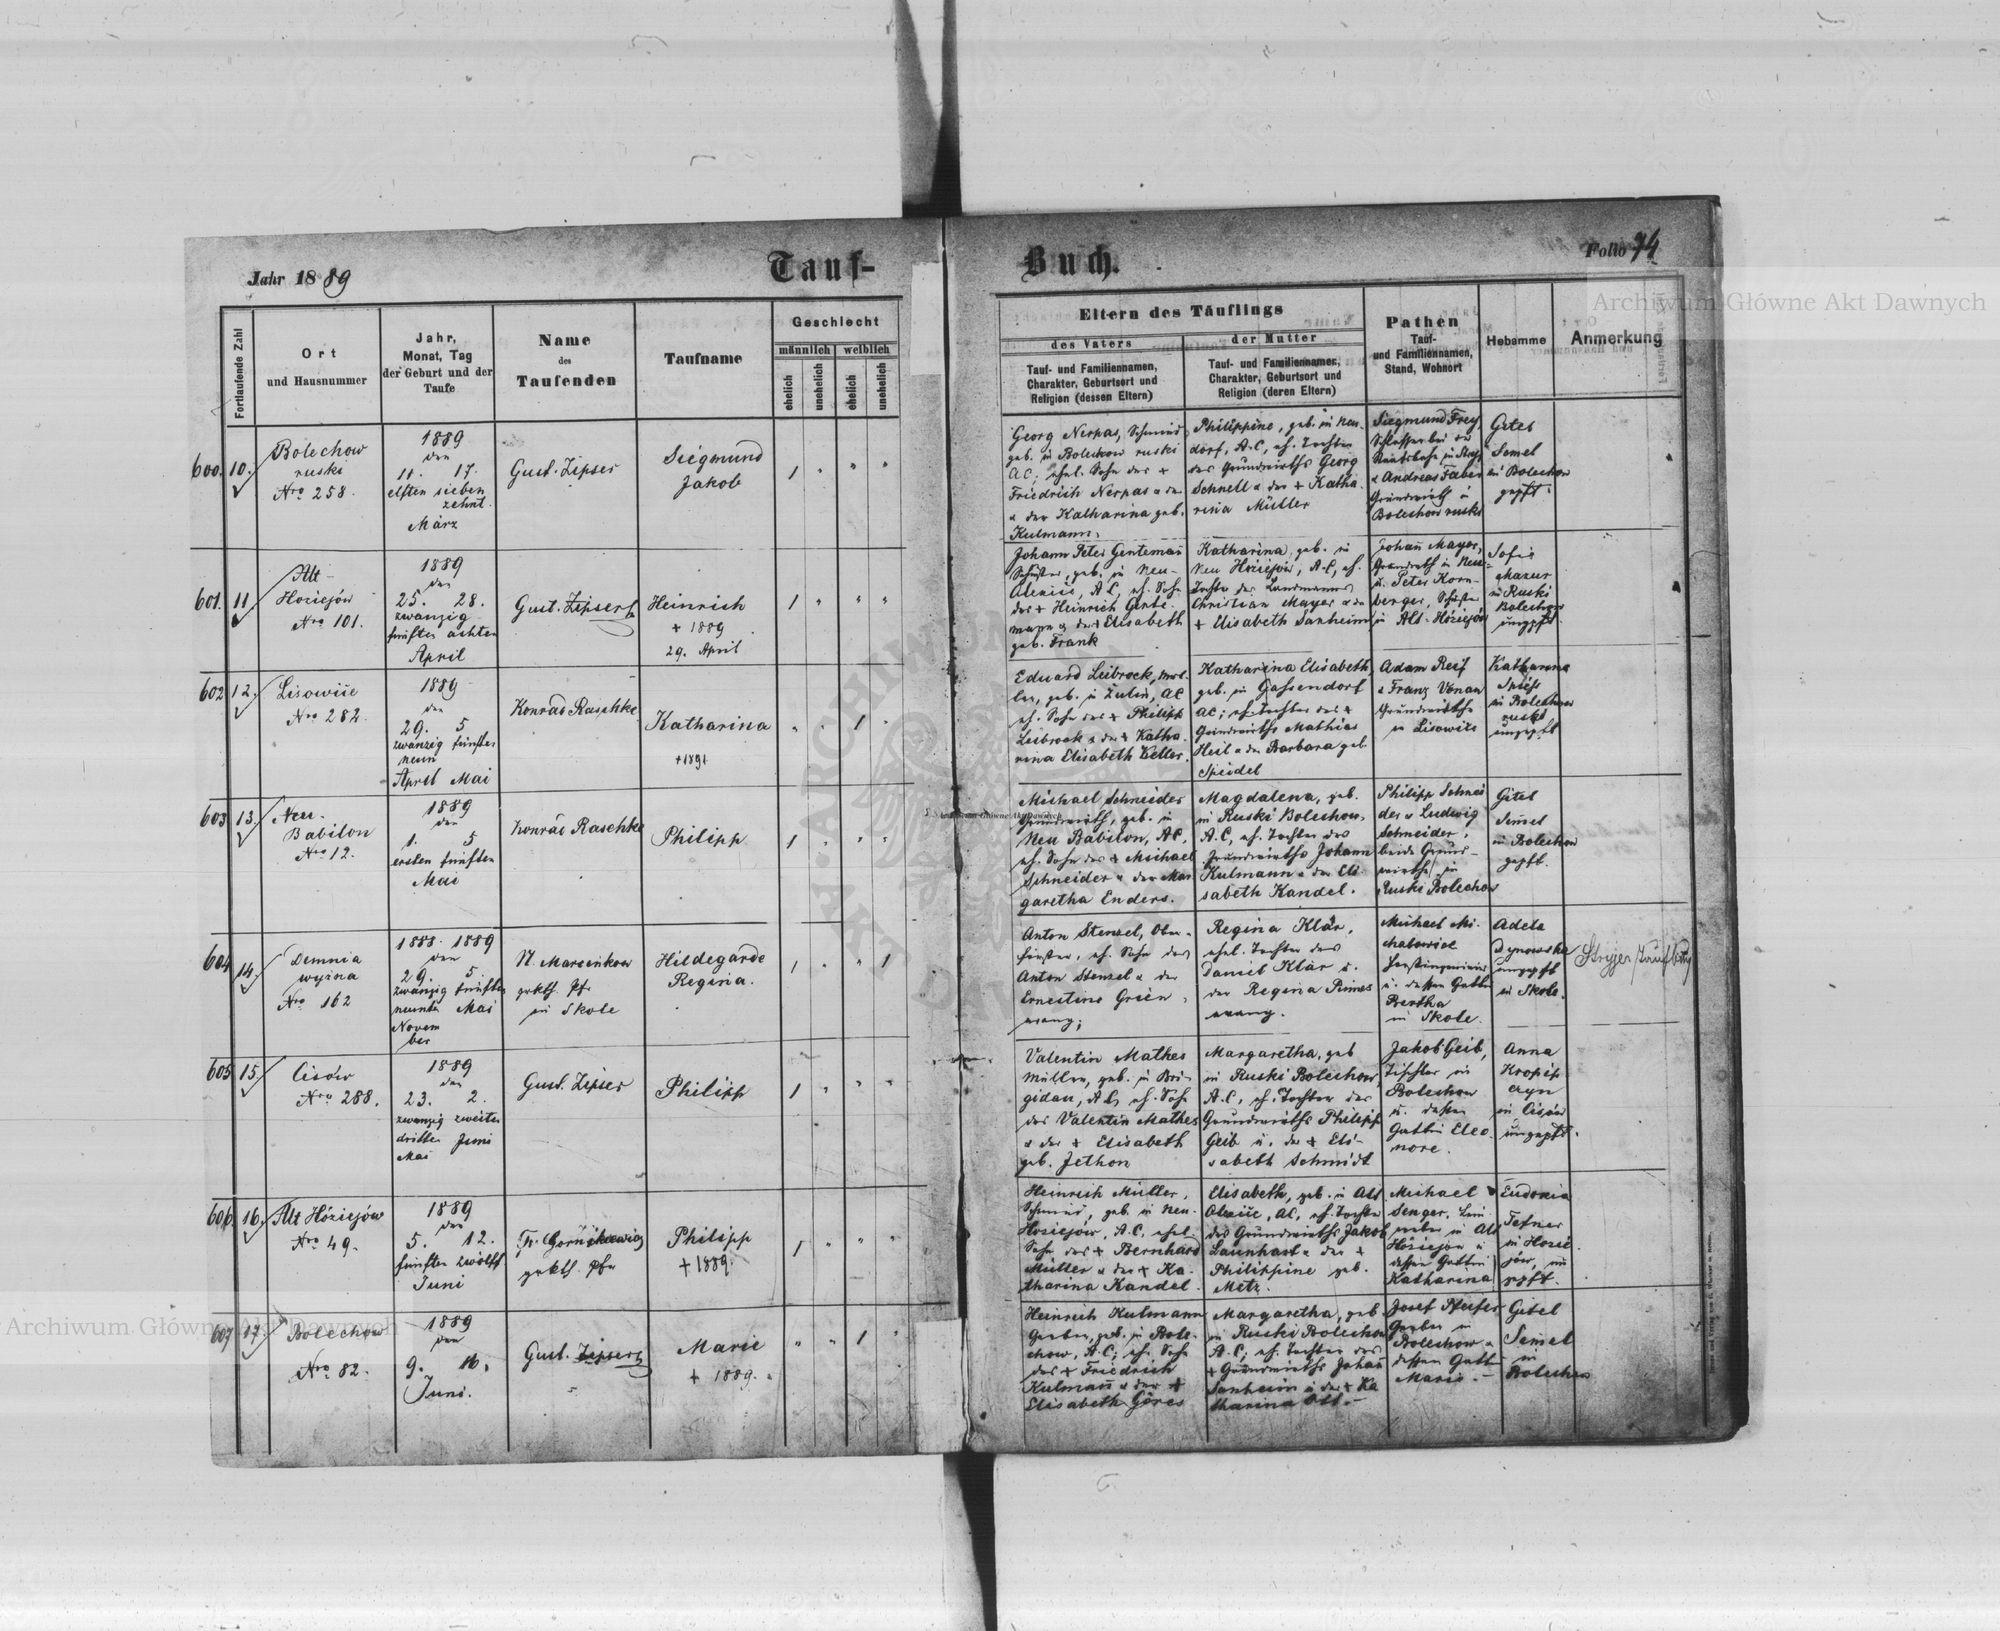 Jahr 1889
Tauf-
Buch.
Folio 74
Archiwum Główne Akt Dawnych
Fortlaufende Zahl
Ort
und Hausnummer
Jahr,
Monat, Tag
der Geburt und der
Taufe
Name
des
Taufenden
Taufname
Geschlecht
männlich weiblich
ehelich
unehelich
ehelich
unehelich
Eltern des Täuflings
des Vaters
der Mutter
Tauf- und Familiennamen,
Charakter, Geburtsort und
Religion (dessen Eltern)
Tauf- und Familiennamen,
Charakter, Geburtsort und
Religion (deren Eltern)
Pathen
Tauf-
und Familiennamen,
Stand, Wohnort
Hebamme
Anmerkung
600. 10.
Bolechow
ruski
Nro 258.
1889
den
11. 17.
elften sieben
zehnt.
März
Gust. Zipser
Siegmund
Jakob
1 " " "
Georg Nerpas, Schmied
geb. in Bolechow ruski
AC; ehel. Sohn des +
Friedrich Nerpas
u der Katharina geb.
Kulmann.
Philippine, geb. in Neu-
dorf, A.C, eh. Tochter
des Grundwirths Georg
Schnell u der + Katha-
rina Müller
Siegmund Frey,
Schlosser bei
u Andreas Faber
Grundwirth in
Bolechow ruski
Gitel
Semel
in Bolechow
gepft.
601. 11
Alt
Hoziejów
Nro 101.
1889
den
25. 28.
zwanzig
fünften achten
April
Gust. Zipser
Heinrich
+ 1889
29. April
1 " " "
Johann Peter Genteman
Schuster, geb. in Neu-
Olexice, A.C, eh. Sohn
des + Heinrich Gente-
mann u der + Elisabeth
geb. Frank
Katharina, geb. in
Neu Hoziejów, A.C, eh.
Tochter des Landmannes
Christian Mayer u der
+ Elisabeth Sanheim
Johann Mayer,
Grundwirth in Neu-
u. Peter Korn-
berger, Schuster
in Alt-Hóziejów
Sofie
Mazur
in Ruski
Bolechow
ungpft.
602 12.
Lisowice
Nro 282.
1889
den
29. 5
zwanzig fünften
neun
April Mai
Konrad Raschke
Katharina
+1891
" " 1 "
Eduard Leibrock, Mül-
ler, geb. in Zulin, AC
eh. Sohn des + Philipp
Leibrock u der + Katha-
rina Elisabeth Keller.
Katharina Elisabeth,
geb. in Gassendorf
AC; eh. Tochter des +
Grundwirths Mathias
Heil u der Barbara geb.
Speidel
Adam Reif
u Franz Venan
Grundwirthe
in Lisowits
Katharina
Spiess
in Bolechow
ruski
ungepft
603 13.
Neu-
Babilon
Nro 12.
1889
den
1. 5
ersten fünften
Mai
Konrad Raschke
Philipp
1 " " "
Michael Schneider
Grundwirth, geb. in
Neu Babilon, AC,
eh. Sohn des + Michael
Schneider u der Mar-
garetha Enders.
Magdalena, geb.
in Ruski Bolechow,
A.C, eh. Tochter des
Grundwirths Johann
Kulmann u der Eli-
sabeth Kandel.
Philipp Schnei
der u Ludwig
Schneider,
beide Grund-
wirthe in
Ruski Bolechow
Gitel
Semel
in Bolechow
gepft.
604 14.
Demnia
wyżna
Nro 162
1888. 1889
den
29. 5.
zwanzig fünften
neunten Mai
Novem
ber
N. Marcinkow
grkth. Pfr
in Skole
Hildegarde
Regina.
1 " " 1
Anton Stenzel, Ober-
förster, eh. Sohn des
Anton Stenzel u der
Ernestine Grien,
evang;
Regina Klär,
ehel. Tochter des
Daniel Klär u.
der Regina Pimes
evang.
Michael Mi-
chalowicz
Forstingenieur
u. dessen Gattin
Bertha
in Skole.
Adela
Dynowska
ungepft
in Skole.
605 15.
Cisów
Nro 288.
1889
den
23. 2.
zwanzig zweiten
dritten Juni
Mai
Gust. Zipser
Philipp
1 " " "
Valentin Mathes
Müller, geb. in Bri-
gidau, A.C, eh. Sohn
des Valentin Mathes
u der + Elisabeth
geb. Jethon
Margaretha, geb
in Ruski Bolechow,
A.C, eh. Tochter des
Grundwirths Philipp
Geib u. der + Eli-
sabeth Schmidt
Jakob Geib,
Tischler in
Bolechow
u. dessen
Gattin Eleo-
nore.
Anna
Kropip
czyn
in Cisów
ungepft.
606 16.
Alt Hóziejów
Nro 49.
1889
den
5. 12.
fünften zwölft
Juni
grkth. Pfr
Philipp
+ 1889.
1 " " "
Heinrich Müller,
Schmied, geb. in Neu-
Hoziejów, A.C, ehel.
Sohn des + Bernhard
Müller u der + Ka-
tharina Kandel.
Elisabeth, geb. in Alt
Olexice, AC, eh. Tochter
des Grundwirths Jakob
Launhart u der +
Philippine geb.
Metz.
Michael
Senger,
in Alt
Hóziejów u
dessen Gattin
Katharina
Eudokia
Fefner
in Hozie-
jów, un
gpft.
607 17.
Bolechow
Nro 82.
1889
den
9. 16.
Juni.
Gust. Zipser
Marie
+ 1889.
" " 1 "
Heinrich Kulmann
Gerber, geb. in Bole-
chow, A.C; eh. Sohn
des + Friedrich
Kulmann u der +
Elisabeth Göres
Margaretha, geb
in Ruski Bolechow
A.C; eh. Tochter des
+ Grundwirths Johann
Sanheim u der + Ka
tharina Ott.-
Josef Pfeifer
Gerber in
Bolechow u
dessen Gattin
Marie.-
Gitel
Semel
in
Bolechow
Archiwum Główne Akt Dawnych
Archiwum Główne Akt Dawnych